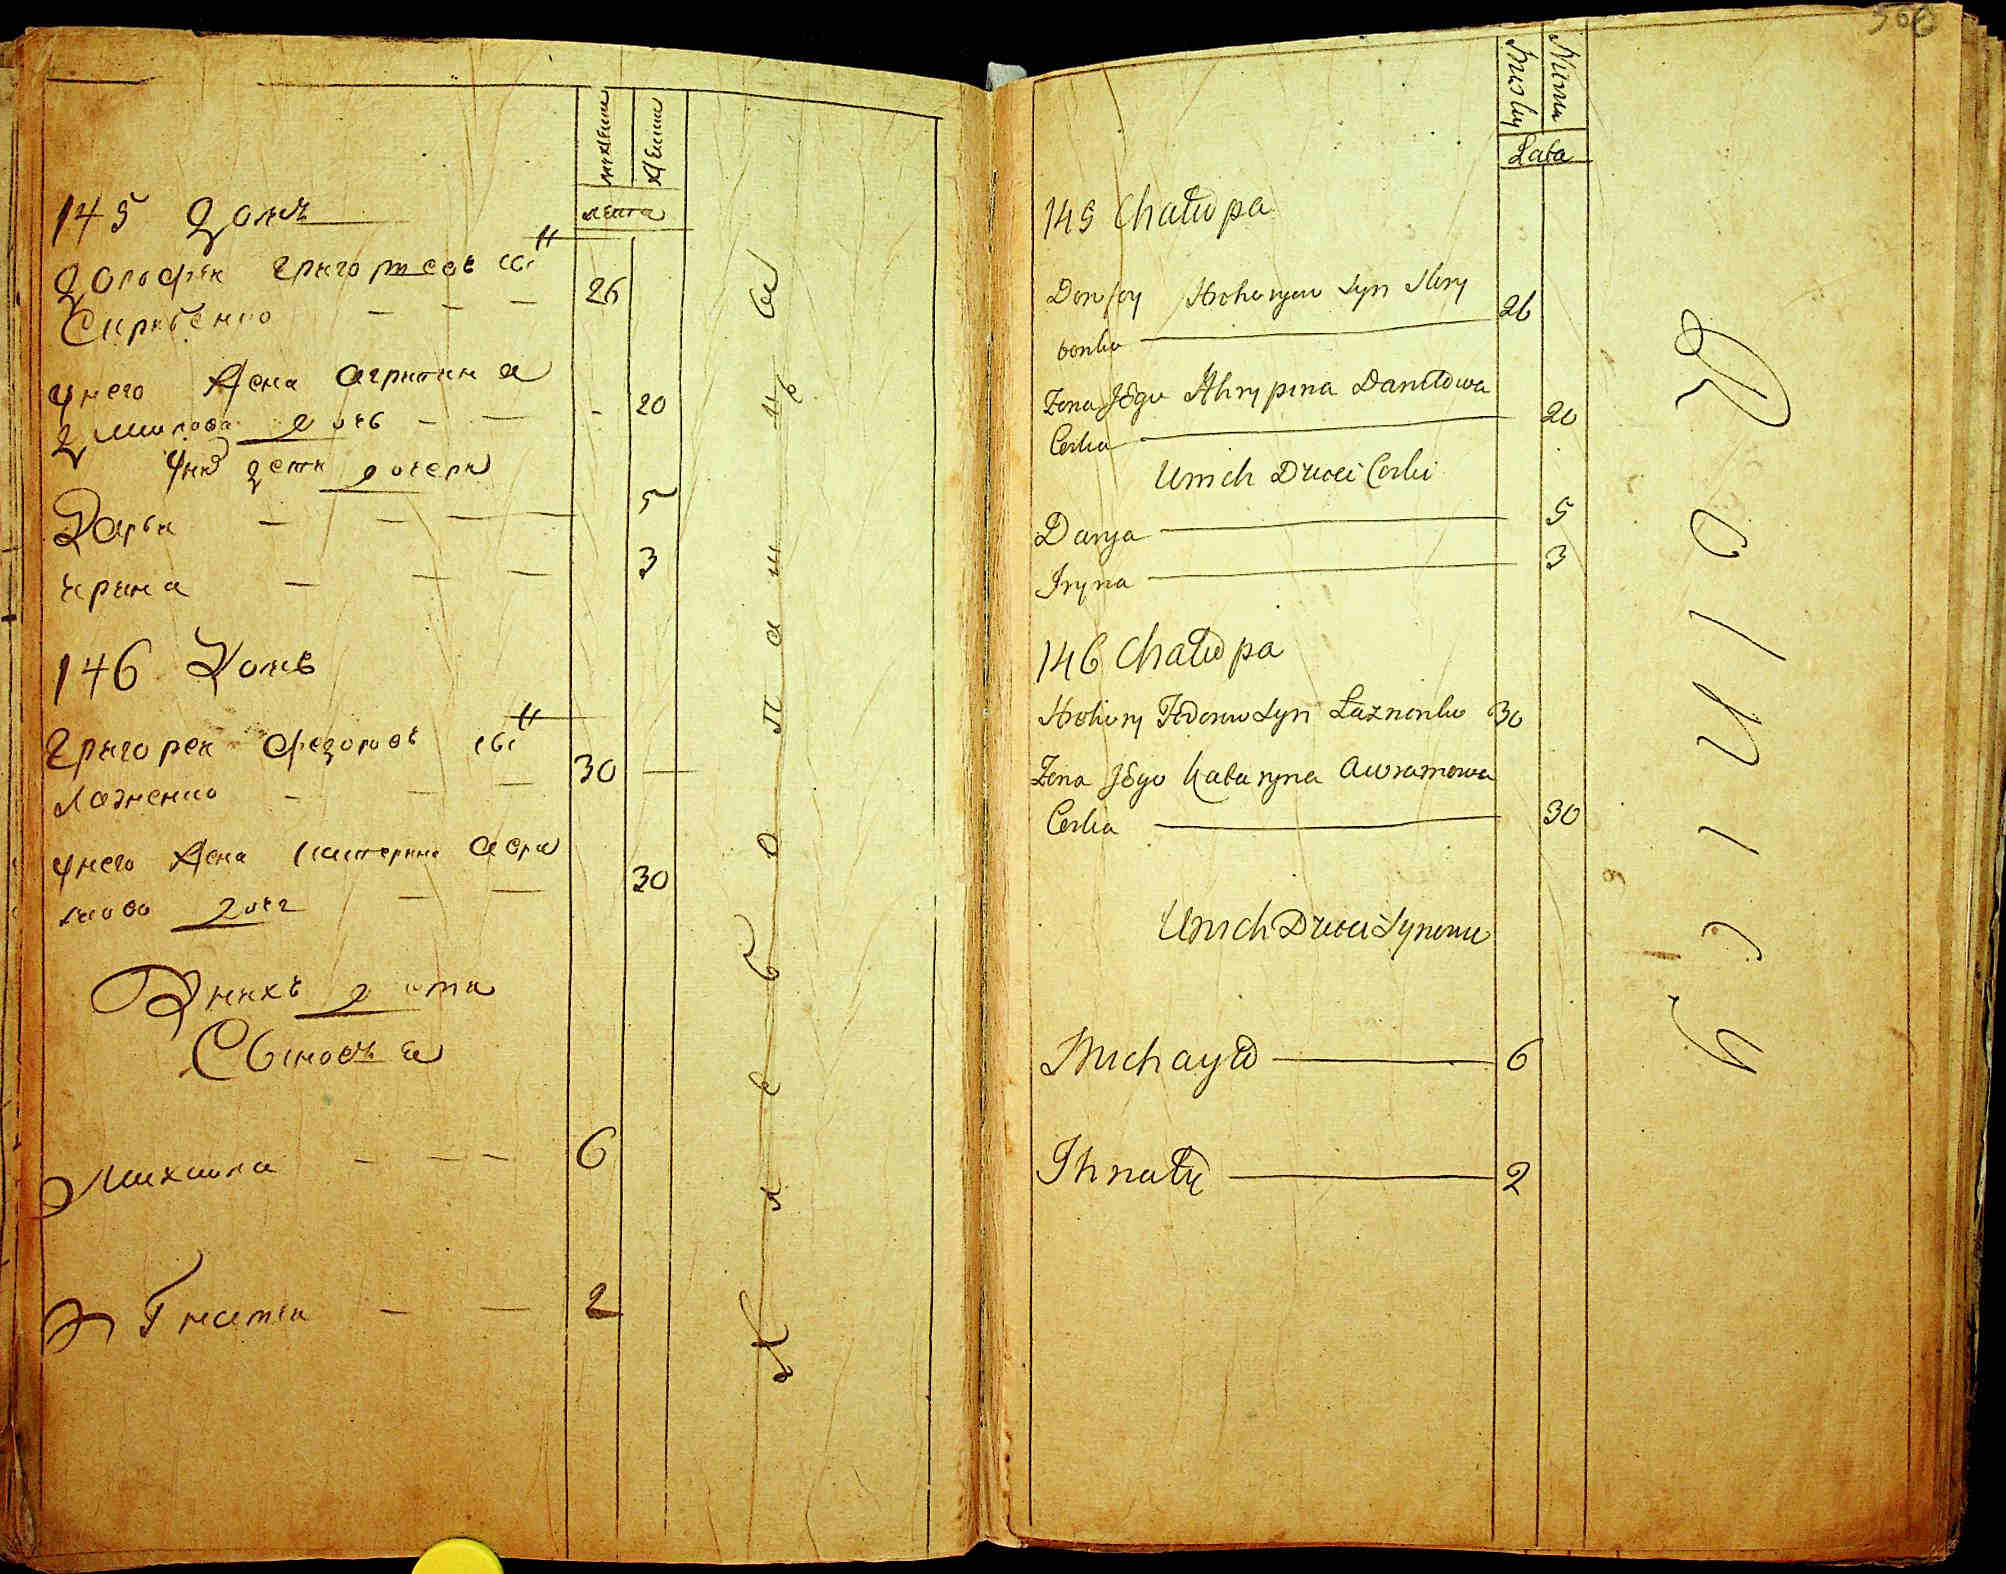 мужески
женски
лета
145 Домъ
Дорофеи Григориевъ сы"
Скрибенко 26
у него жена Агрипина
Данилова дочь 20
у них дети дочери
Дарья 5
Ирина 3
146 Домъ
Григореи Федоровъ сы"
Лазненко 30
у него жена Катерина Авра
мова дочь 30
У нихъ дети
Сыновья
Михаила 6
Гнатеи 2
Хлебопашцы
Lata
145 Chałupa
Dorofey Hrehoryew Syn Skry
benko 26
Żona Jego Ahrypina Daniłowa
Corka 20
U nich Dzieci Corki
Darya 5
Iryna 3
146 Chałupa
Hrehory Fedorow Syn Łaznenko 30
Żona Jego Kataryna Awramowa
Corka 30
U nich Dzieci Synowie
Michayło 6
Ihnaty 2
Rolnicy